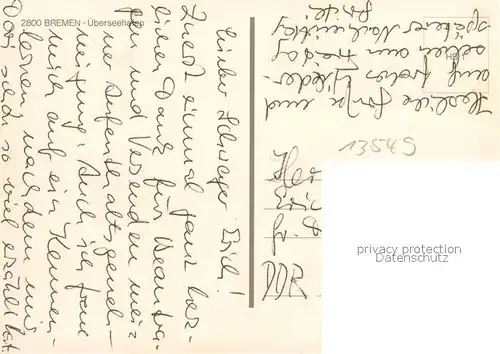 2800 BREMEN - Überseehafen
Lieber Schwager Erich!
Zuerst einmal ganz herz-
lichen Dank für Beantra-
gen und Versenden mei-
ner Aufenthaltsgeneh-
migung. Auch ich freue
mich auf ein Kennen-
lernen nachdem mir
Dori schon so viel erzählt hat.
Herzliche Grüße und
auf frohes Wieder-
sehen am Freitag
späterer Nachmittag
13549
Her
Eri
DDR
privacy protection
Datenschutz